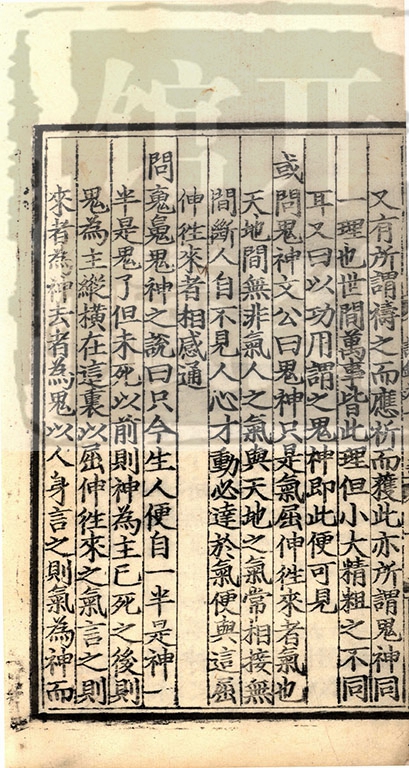 又有所謂禱之而應祈而獲此亦所謂鬼神同
一理也世間萬事皆此理但小大精粗之不同
耳又曰以功用謂之鬼神即此便可見
或問鬼神文公曰鬼神只是氣屈伸徃來者氣也
天地間無非氣人之氣與天地之氣常相接無
間斷人自不見人心才動必達於氣便與這屈
伸徃來者相感通
問䰟鬼神之說曰只今生人便自一半是神一
半是鬼了但未死以前則神為主已死之後則
鬼為主縱橫在這裏以屈伸徃來之氣言之則
來者為神去者為鬼以人身言之則氣為神而